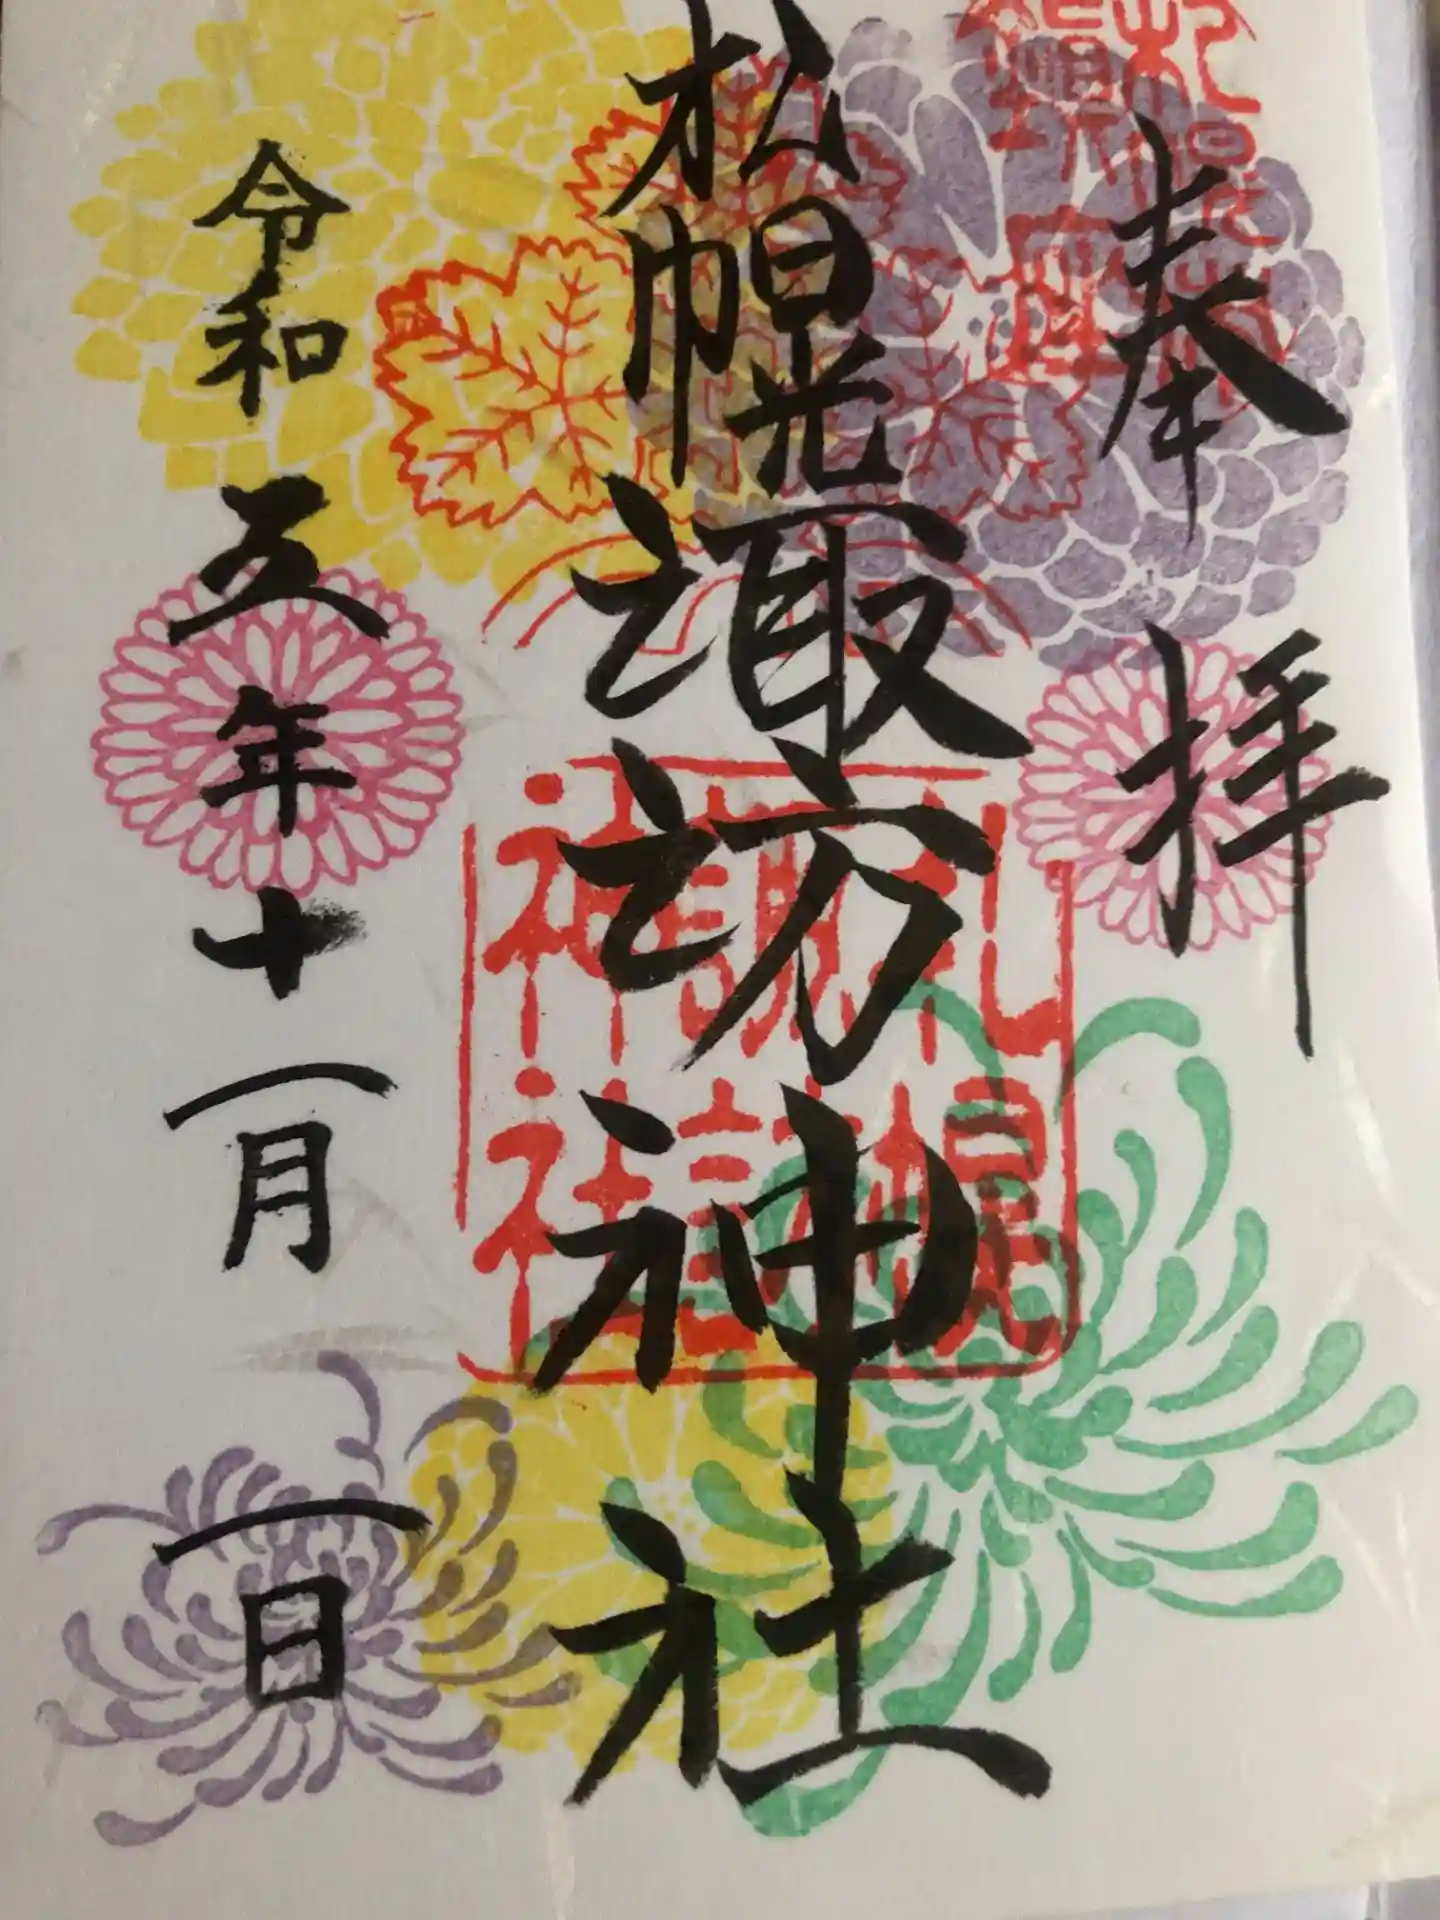 奉拝
札幌諏訪神社
令和五年十一月一日
札幌
諏訪
神社